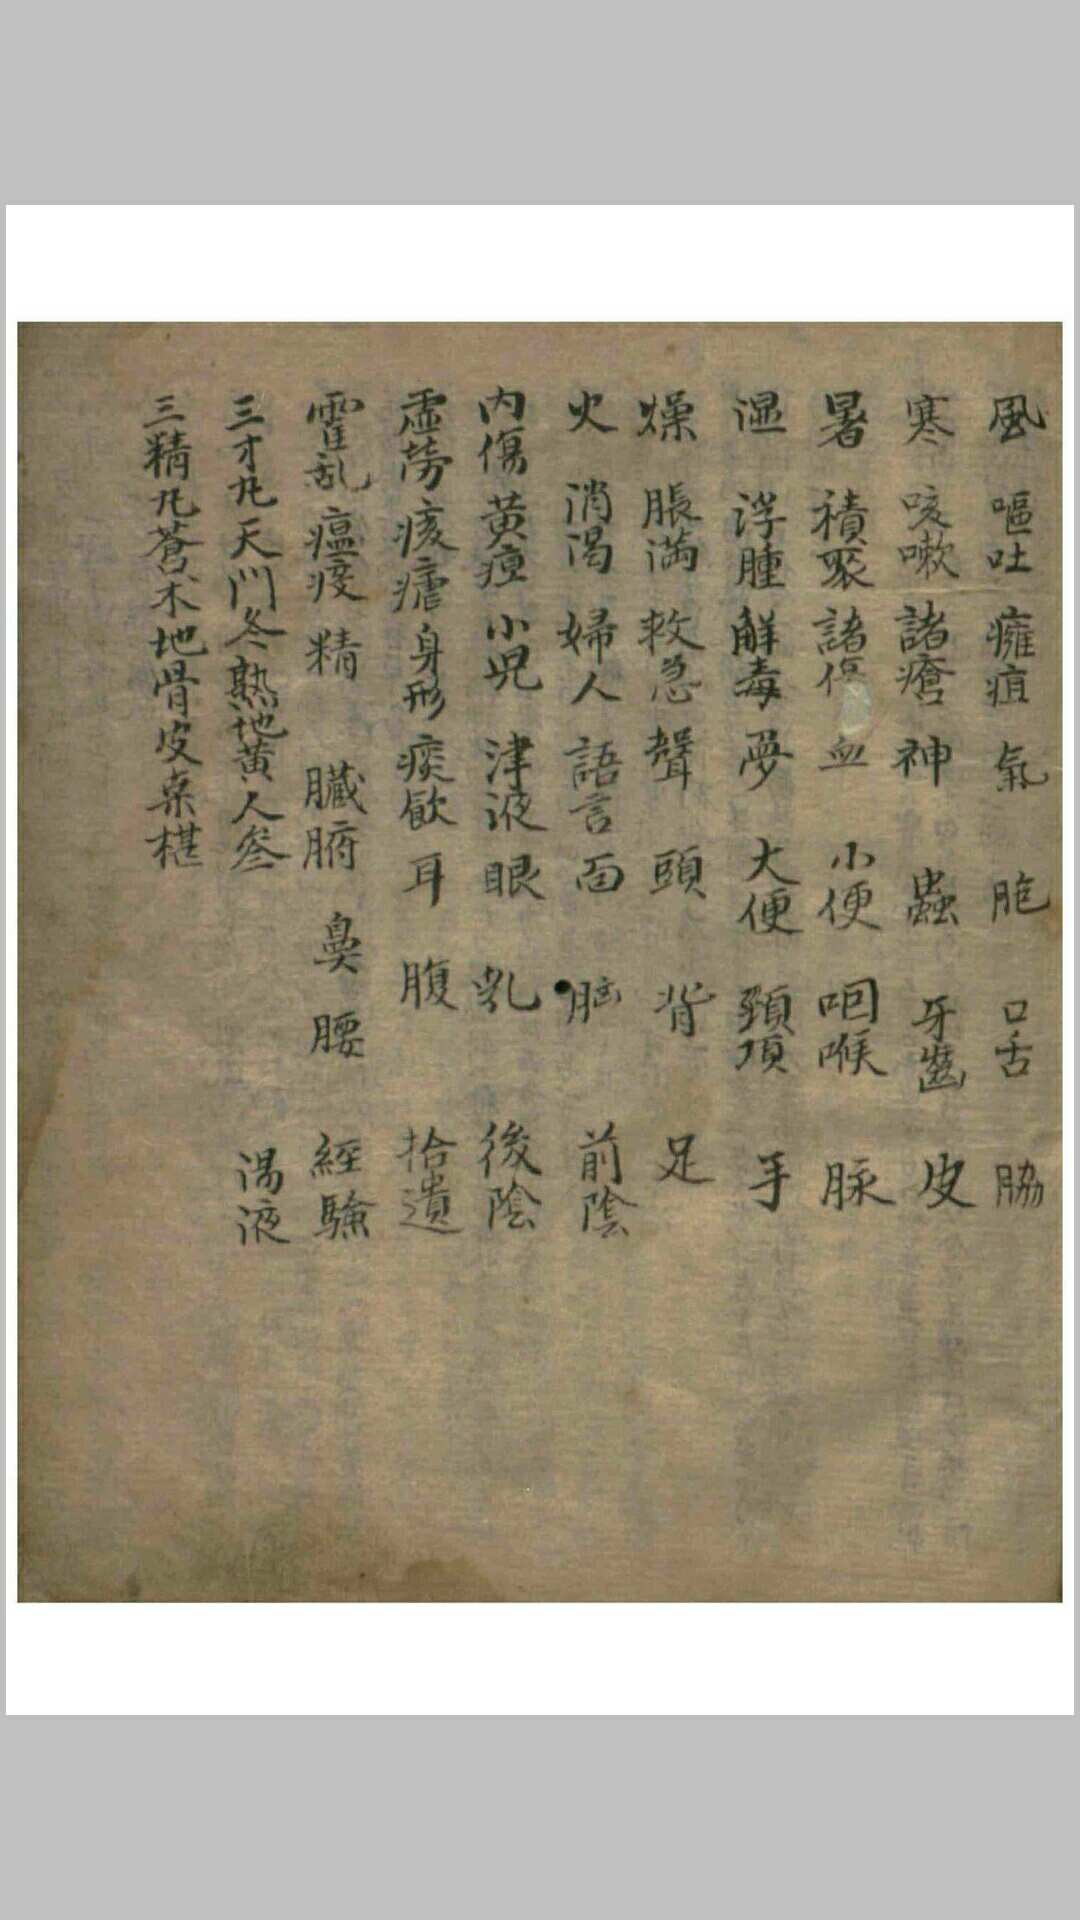 風 嘔吐 癰疽 氣 胞 口舌 脇
寒 咳嗽 諸瘡 神 蟲 牙齒 皮
暑 積聚 諸傷 血 小便 咽喉 脉
湿 浮腫 解毒 夢 大便 頸項 手
燥 脹滿 救急 聲 頭 背 足
火 消渴 婦人 語言 面 胸 前陰
內傷 黃疸 小兒 津液 眼 乳 後陰
虛勞 痎瘧 身形 痰飮 耳 腹 拾遺
霍乱 瘟疫 精 臟腑 鼻 腰 經驗
三才丸 天門冬 熟地黃 人参 湯液
三精丸 蒼朮 地骨皮 桑椹